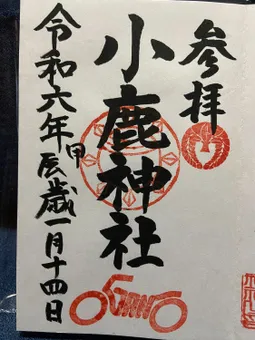 参拝
小鹿神社
令和六年甲辰歳一月十四日
OGANO